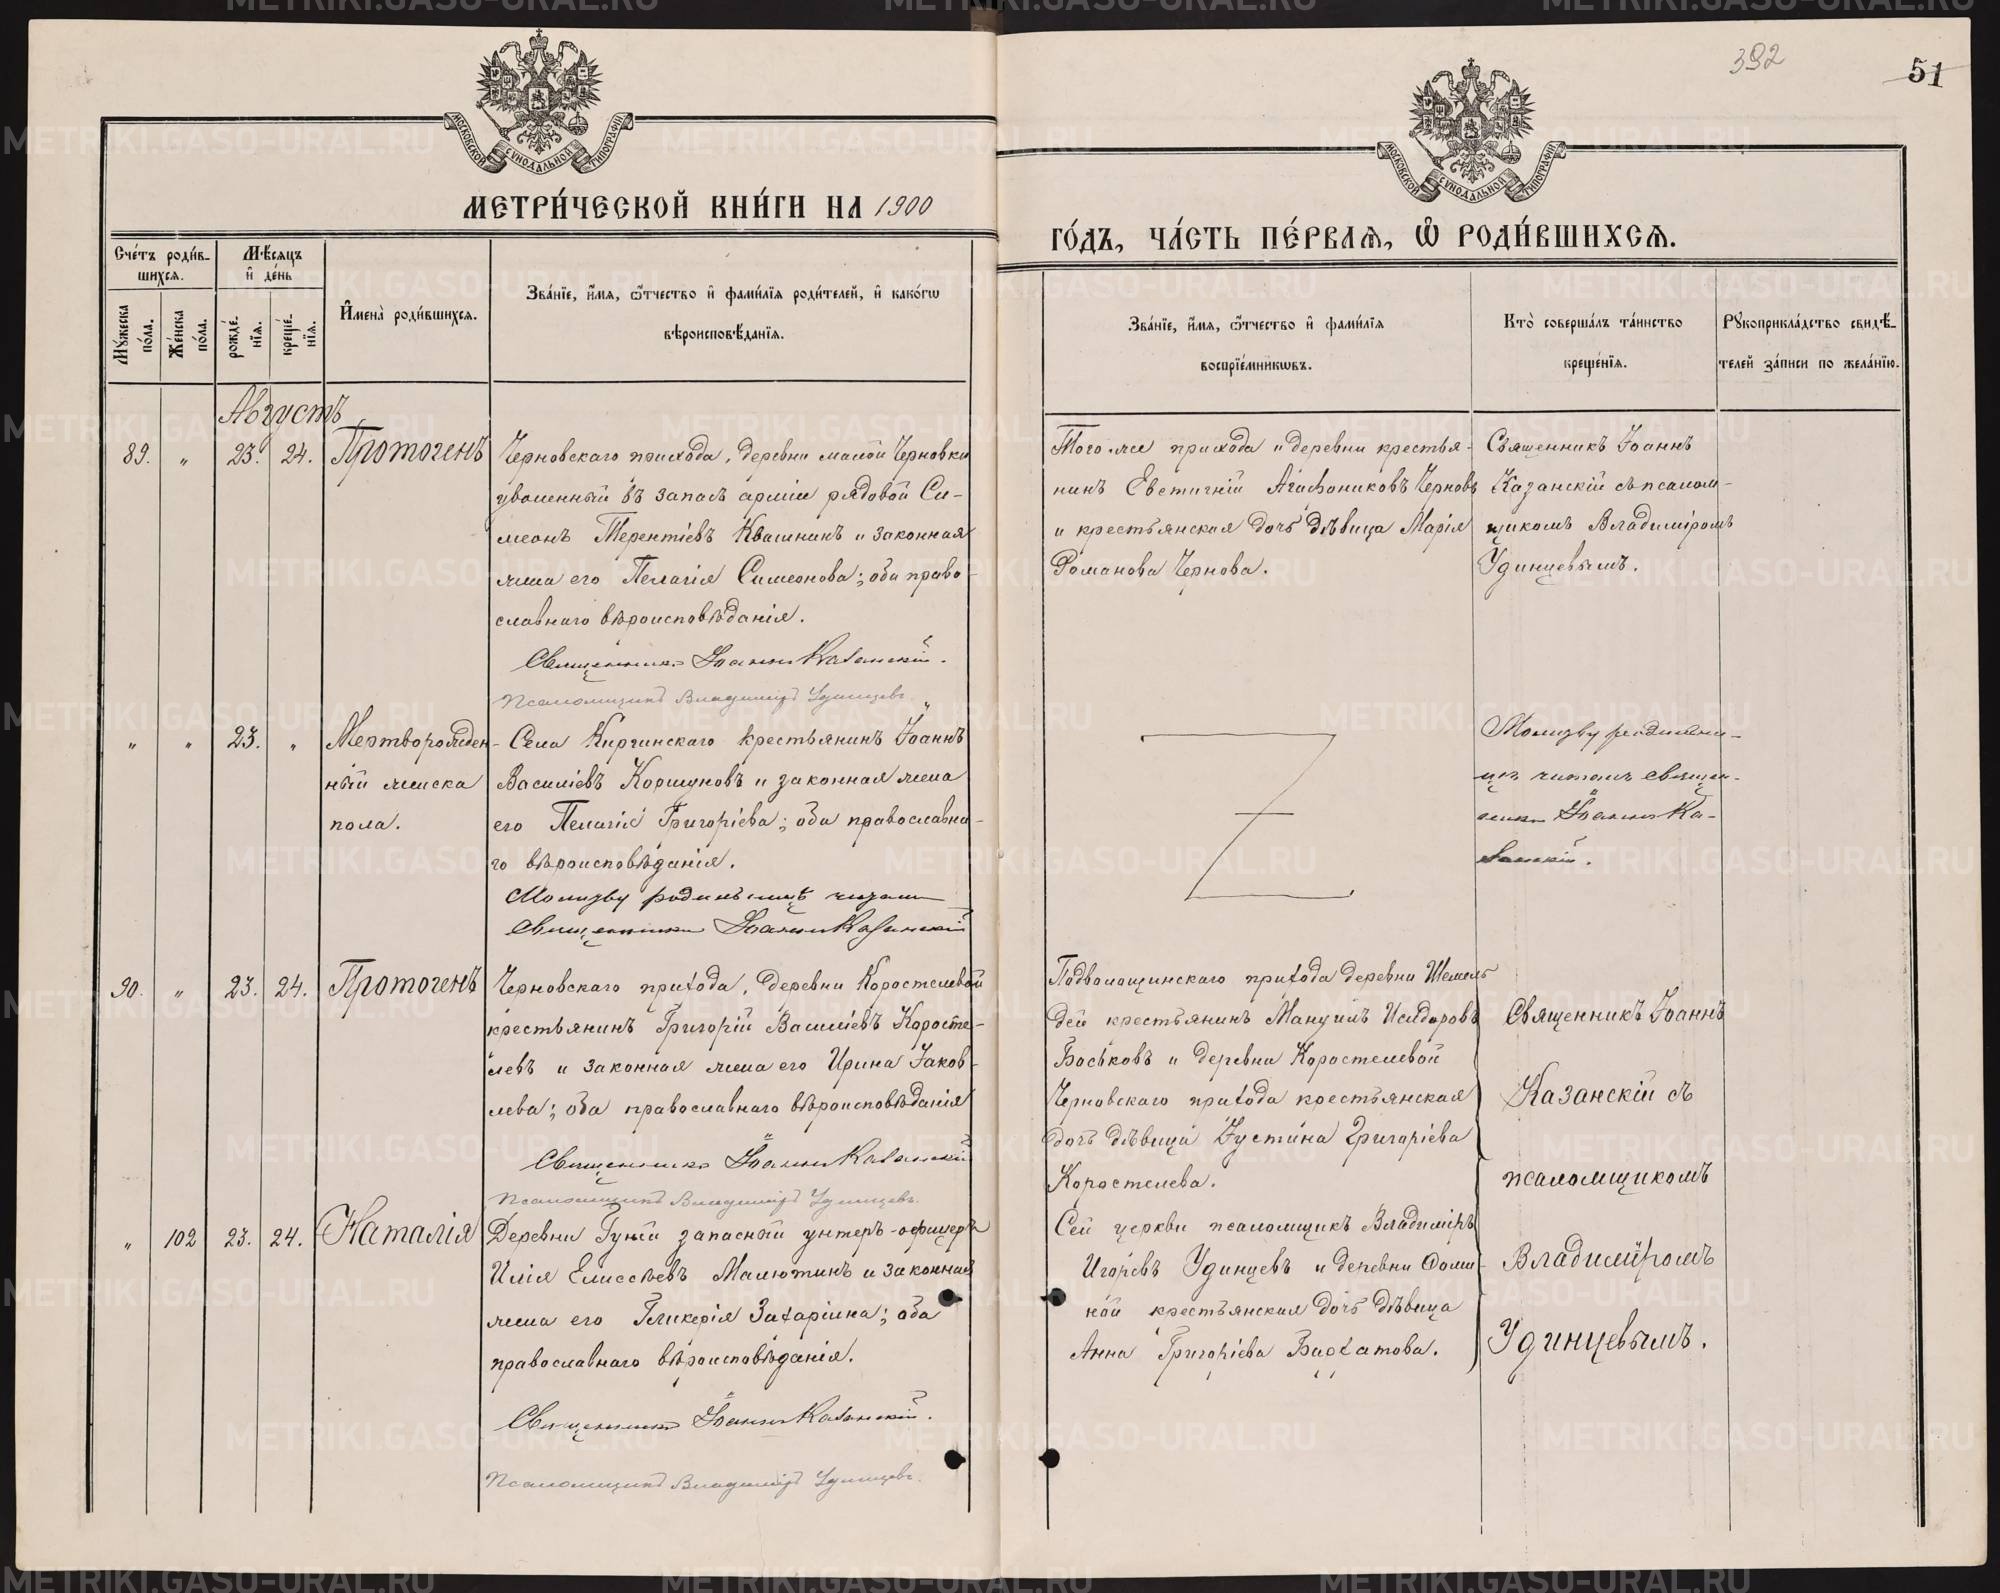 392
51
МОСКОВСКОЙ СѴНОДАЛЬНОЙ ТИПОГРАФІИ
МОСКОВСКОЙ СѴНОДАЛЬНОЙ ТИПОГРАФІИ
МЕТРИ́ЧЕСКОЙ КНИ́ГИ НА 1900
ГО́ДЪ, ЧА́СТЬ ПЕ́РВАѦ, Ѡ҆ РОДИ́ВШИХСѦ.
Сче́тъ роди́в-
шихсѧ.
Мꙋ́жеска по́ла.
Же́нска по́ла.
Мѣ́сѧцъ
и҆ де́нь
рожде́-нїѧ.
креще́-нїѧ.
И҆мена̀ роди́вшихсѧ.
Зва́нїе, и҆́мѧ, ѻ҆́тчество и҆ фами́лїѧ роди́телей, и҆ како́гѡ
вѣроисповѣ́данїѧ.
Зва́нїе, и҆́мѧ, ѻ҆́тчество и҆ фами́лїѧ
воспрїе́мникѡвъ.
Кто̀ соверша́лъ та́инство
креще́нїѧ.
Рꙋкоприкла́дство свидѣ́-
телей за́писи по жела́нїю.
Августъ
89. " 23. 24. Протогенъ
Черновскаго прихода, деревни малой Черновки
уволенный въ запасъ арміи рядовой Си-
меонъ Терентіевъ Квашнинъ и законная
жена его Пелагія Симеонова; оба право-
славнаго вѣроисповѣданія.
Священникъ Іоаннъ Казанскій.
Псаломщикъ Владиміръ Удинцевъ.
Того-же прихода и деревни крестья-
нинъ Евстигній Агафониковъ Черновъ
и крестьянская дочь дѣвица Марія
Романова Чернова.
Священникъ Іоаннъ
Казанскій съ псалом-
щикомъ Владиміромъ
Удинцевымъ.
" " 23. " Мертворожден-
ный женска
пола.
Села Киргинскаго крестьянинъ Іоаннъ
Василіевъ Коршуновъ и законная жена
его Пелагія Григоріева; оба православна-
го вѣроисповѣданія.
Молитву родильницѣ читалъ
Священникъ Іоаннъ Казанскій
Молитву родильни-
цѣ читалъ священ-
никъ Іоаннъ Ка-
занскій.
90. " 23. 24. Протогенъ
Черновскаго прихода, деревни Коростелевой
крестьянинъ Григорій Василіевъ Коросте-
левъ и законная жена его Ирина Іаков-
лева; оба православнаго вѣроисповѣданія
Священникъ Іоаннъ Казанскій
Псаломщикъ Владиміръ Удинцевъ.
Подволошинскаго прихода деревни
крестьянинъ Мануилъ Исидоровъ
Боськовъ и деревни Коростелевой
Черновскаго прихода крестьянская
дочь дѣвица Іустина Григоріева
Коростелева.
Священникъ Іоаннъ
Казанскій съ
псаломщикомъ
Владиміромъ
Удинцевымъ.
" 102 23. 24. Наталія
Деревни Гуній запасный унтеръ-офицеръ
Илія Елисѣевъ Малютинъ и законная
жена его Гликерія Захаріина; оба
православнаго вѣроисповѣданія.
Священникъ Іоаннъ Казанскій.
Псаломщикъ Владиміръ Удинцевъ.
Сей церкви псаломщикъ Владиміръ
Игоревъ Удинцевъ и деревни Фоми-
ной крестьянская дочь дѣвица
Анна Григоріева Бахатова.
METRIKI.GASO-URAL.RU